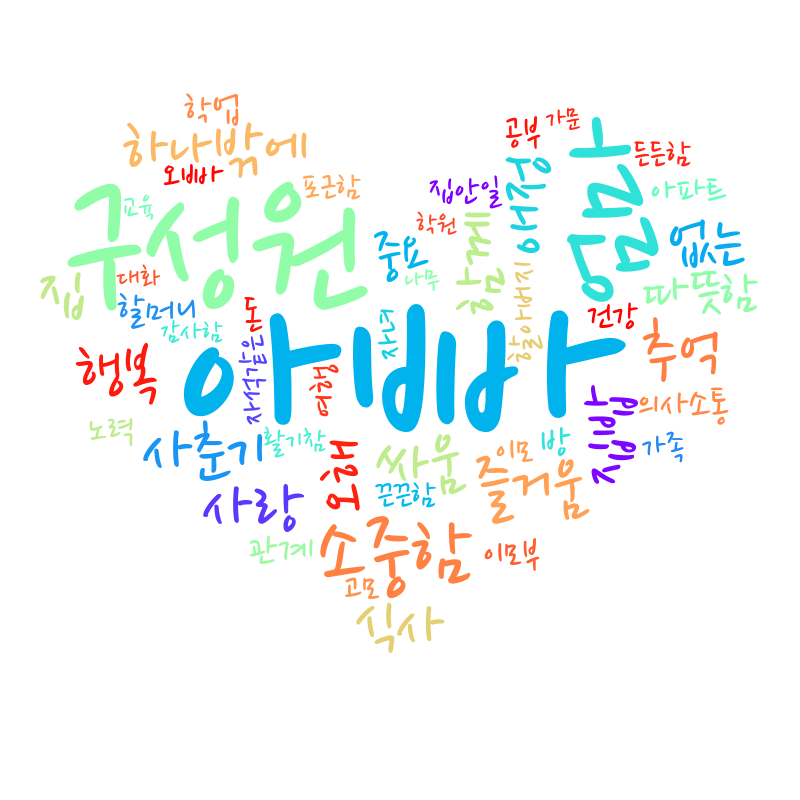 학업
하나밖에
오빠
공부
가문
든든함
구성원
교육
포근함
집안일
애정
엄마
아파트
학원
함께
중요
없는
집
대화
할머니
나무
따뜻함
감사함
돈
자녀
할아버지
건강
아빠
행복
자석같은
여행
추억
의사소통
노력
사춘기
활기참
오해
싸움
이모
방
가족
끈끈함
즐거움
사랑
관계
소중함
이모부
고모
식사